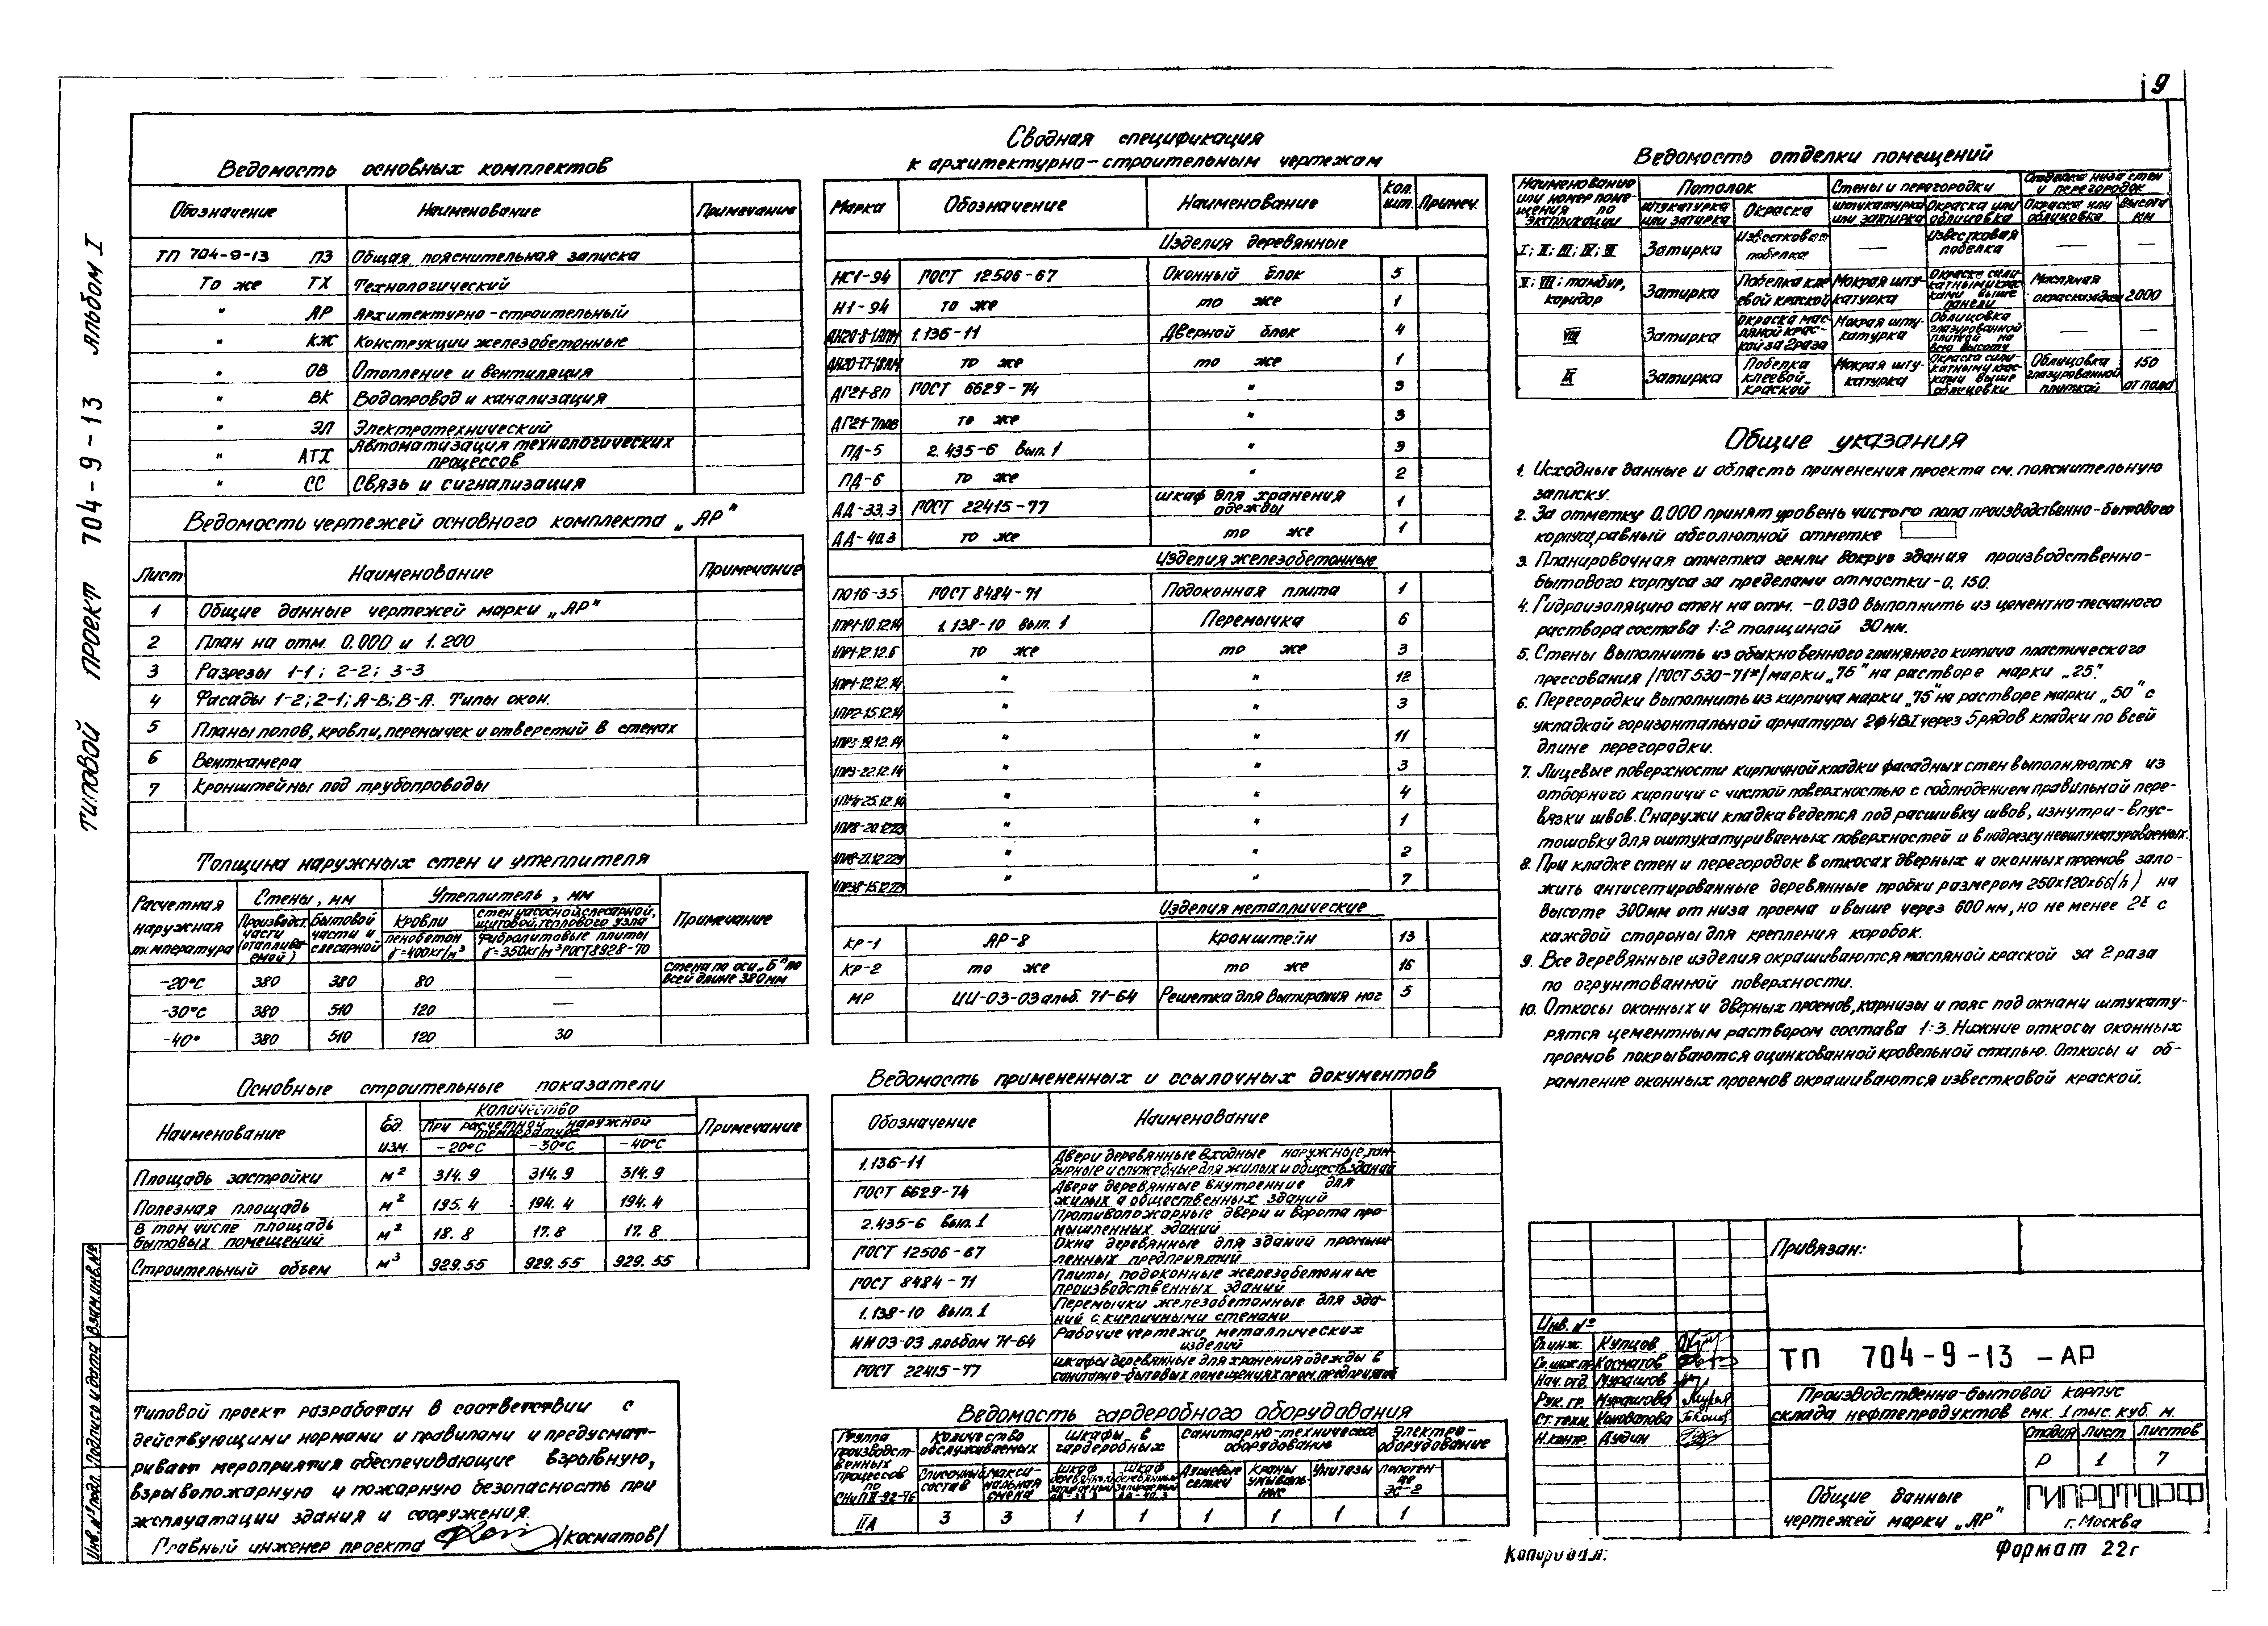 9
Типовой проект 704-9-13 Альбом I
Ведомость основных комплектов
Обозначение Наименование Примечание
ТП 704-9-13 ПЗ Общая пояснительная записка
То же ТХ Технологический
" АР Архитектурно-строительный
" КЖ Конструкции железобетонные
" ОВ Отопление и вентиляция
" ВК Водопровод и канализация
" ЭЛ Электротехнический
" АТХ Автоматизация технологических
процессов
" СС Связь и сигнализация
Ведомость чертежей основного комплекта „АР"
Лист Наименование Примечание
1 Общие данные чертежей марки „АР"
2 План на отм. 0.000 и 1.200
3 Разрезы 1-1; 2-2; 3-3
4 Фасады 1-2; 2-1; А-В; В-А. Типы окон.
5 Планы полов, кровли, перемычек и отверстий в стенах
6 Венткамера
7 Кронштейны под трубопроводы
Толщина наружных стен и утеплителя
Расчетная наружная температура
Стены, мм Утеплитель, мм Примечание
Производст. части (отапливаемой) Бытовой части и слесарной
Кровли пенобетон γ=400кг/м³
стен насосной, слесарной, щитовой, теплового узла
Фибролитовые плиты γ=350кг/м³ ГОСТ 8928-70
-20°С 380 380 80 — стена по оси „Б" по всей длине 380мм
-30°С 380 510 120 —
-40° 380 510 120 30
Основные строительные показатели
Наименование Ед. изм. Количество Примечание
При расчетной наружной температуре
-20°С -30°С -40°С
Площадь застройки м² 314.9 314.9 314.9
Полезная площадь м² 195.4 194.4 194.4
В том числе площадь
бытовых помещений м² 18.8 17.8 17.8
Строительный объем м³ 929.55 929.55 929.55
Типовой проект разработан в соответствии с
действующими нормами и правилами и предусмат-
ривает мероприятия обеспечивающие взрывную,
взрывопожарную и пожарную безопасность при
эксплуатации здания и сооружения.
Главный инженер проекта /Косматов/
Инв. № подл. Подпись и дата Взам.инв.№
Сводная спецификация
к архитектурно-строительным чертежам
Марка Обозначение Наименование Кол. шт. Примеч.
Изделия деревянные
НС1-94 ГОСТ 12506-67 Оконный блок 5
Н1-94 то же то же 1
1.136-11 Дверной блок 4
то же то же 1
ДГ21-8п ГОСТ 6629-74 " 3
ДГ21-7пав то же " 3
ПД-5 2.435-6 вып.1 " 3
ПД-6 то же " 2
АД-33.3 ГОСТ 22415-77 шкаф для хранения одежды 1
АД-40.3 то же то же 1
Изделия железобетонные
ПО16-35 ГОСТ 8484-71 Подоконная плита 1
1ПР1-10.12.14 1.138-10 вып.1 Перемычка 6
1ПР1-12.12.6 то же то же 3
1ПР1-12.12.14 " " 12
1ПР2-15.12.14 " " 3
1ПР3-19.12.14 " " 11
1ПР3-22.12.14 " " 3
1ПР4-25.12.14 " " 4
" " 1
" " 2
" " 7
Изделия металлические
КР-1 АР-8 Кронштейн 13
КР-2 то же то же 16
МР ИИ-03-03 альб. 71-64 Решетка для вытирания ног 5
Ведомость примененных и ссылочных документов
Обозначение Наименование
1.136-11 Двери деревянные входные наружные, там-
бурные и служебные для жилых и обществ. зданий
ГОСТ 6629-74 Двери деревянные внутренние для
жилых и общественных зданий
2.435-6 вып.1 Противопожарные двери и ворота про-
мышленных зданий
ГОСТ 12506-67 Окна деревянные для зданий промыш-
ленных предприятий
ГОСТ 8484-71 Плиты подоконные железобетонные
производственных зданий
1.138-10 вып.1 Перемычки железобетонные для зда-
ний с кирпичными стенами
ИИ 03-03 альбом 71-64 Рабочие чертежи металлических
изделий
ГОСТ 22415-77 шкафы деревянные для хранения одежды в
санитарно-бытовых помещениях пром. предприятий
Ведомость гардеробного оборудования
Группа производственных процессов по СНиП II-92-76
Количество обслуживаемых Шкафы в гардеробных Санитарно-техническое оборудование Электро-оборудование
Списочный состав Максимальная смена Шкаф деревянный Шкаф деревянный Душевые сетки Краны умывальник Унитазы Полотенце ЭС-2
IIА 3 3 1 1 1 1 1 1
Ведомость отделки помещений
Наименование или номер помещения по экспликации
Потолок Стены и перегородки Отделка низа стен и перегородок
штукатурка или затирка Окраска штукатурка или затирка Окраска или облицовка Окраска или облицовка Высота мм
I; II; III; IV; VI Затирка Известковая побелка — Известковая побелка — —
V; VII; тамбур, коридор Затирка Побелка клеевой краской Мокрая штукатурка Окраска силикатными красками выше панели Масляная окраска 2000
VIII Затирка Окраска масляной краской за 2 раза Мокрая штукатурка Облицовка глазурованной плиткой на всю высоту — —
IX Затирка Побелка клеевой краской Мокрая штукатурка Окраска силикатными красками выше облицовки Облицовка глазурованной плиткой 150 от пола
Общие указания
1. Исходные данные и область применения проекта см. пояснительную
записку.
2. За отметку 0.000 принят уровень чистого пола производственно-бытового
корпуса, равный абсолютной отметке
3. Планировочная отметка земли вокруг здания производственно-
бытового корпуса за пределами отмостки -0.150.
4. Гидроизоляцию стен на отм. -0.030 выполнить из цементно-песчаного
раствора состава 1:2 толщиной 30мм.
5. Стены выполнить из обыкновенного глиняного кирпича пластического
прессования /ГОСТ 530-71*/ марки „75" на растворе марки „25".
6. Перегородки выполнить из кирпича марки „75" на растворе марки „50" с
укладкой горизонтальной арматуры 2ф4ВI через 5 рядов кладки по всей
длине перегородки.
7. Лицевые поверхности кирпичной кладки фасадных стен выполняются из
отборного кирпича с чистой поверхностью с соблюдением правильной пере-
вязки швов. Снаружи кладка ведется под расшивку швов, изнутри - впус-
тошовку для оштукатуриваемых поверхностей и в подрезку неоштукатуриваемых.
8. При кладке стен и перегородок в откосах дверных и оконных проемов зало-
жить антисептированные деревянные пробки размером 250х120х66(h) на
высоте 300мм от низа проема и выше через 600мм, но не менее 2х с
каждой стороны для крепления коробок.
9. Все деревянные изделия окрашиваются масляной краской за 2 раза
по огрунтованной поверхности.
10. Откосы оконных и дверных проемов, карнизы и пояс под окнами штукату-
рятся цементным раствором состава 1:3. Нижние откосы оконных
проемов покрываются оцинкованной кровельной сталью. Откосы и об-
рамление оконных проемов окрашиваются известковой краской.
Привязан:
Инв. №
Гл. инж. Купцов
Гл. инж. пр. Косматов
Нач. отд. Мурашов
Рук. гр. Мурашова
Ст. техн. Коновалова
Н. контр. Дудин
ТП 704-9-13 -АР
Производственно-бытовой корпус
склада нефтепродуктов емк. 1 тыс. куб. м.
Стадия Лист Листов
Р 1 7
Общие данные
чертежей марки „АР"
ГИПРОТОРФ
г. Москва
Копировал:
Формат 22г